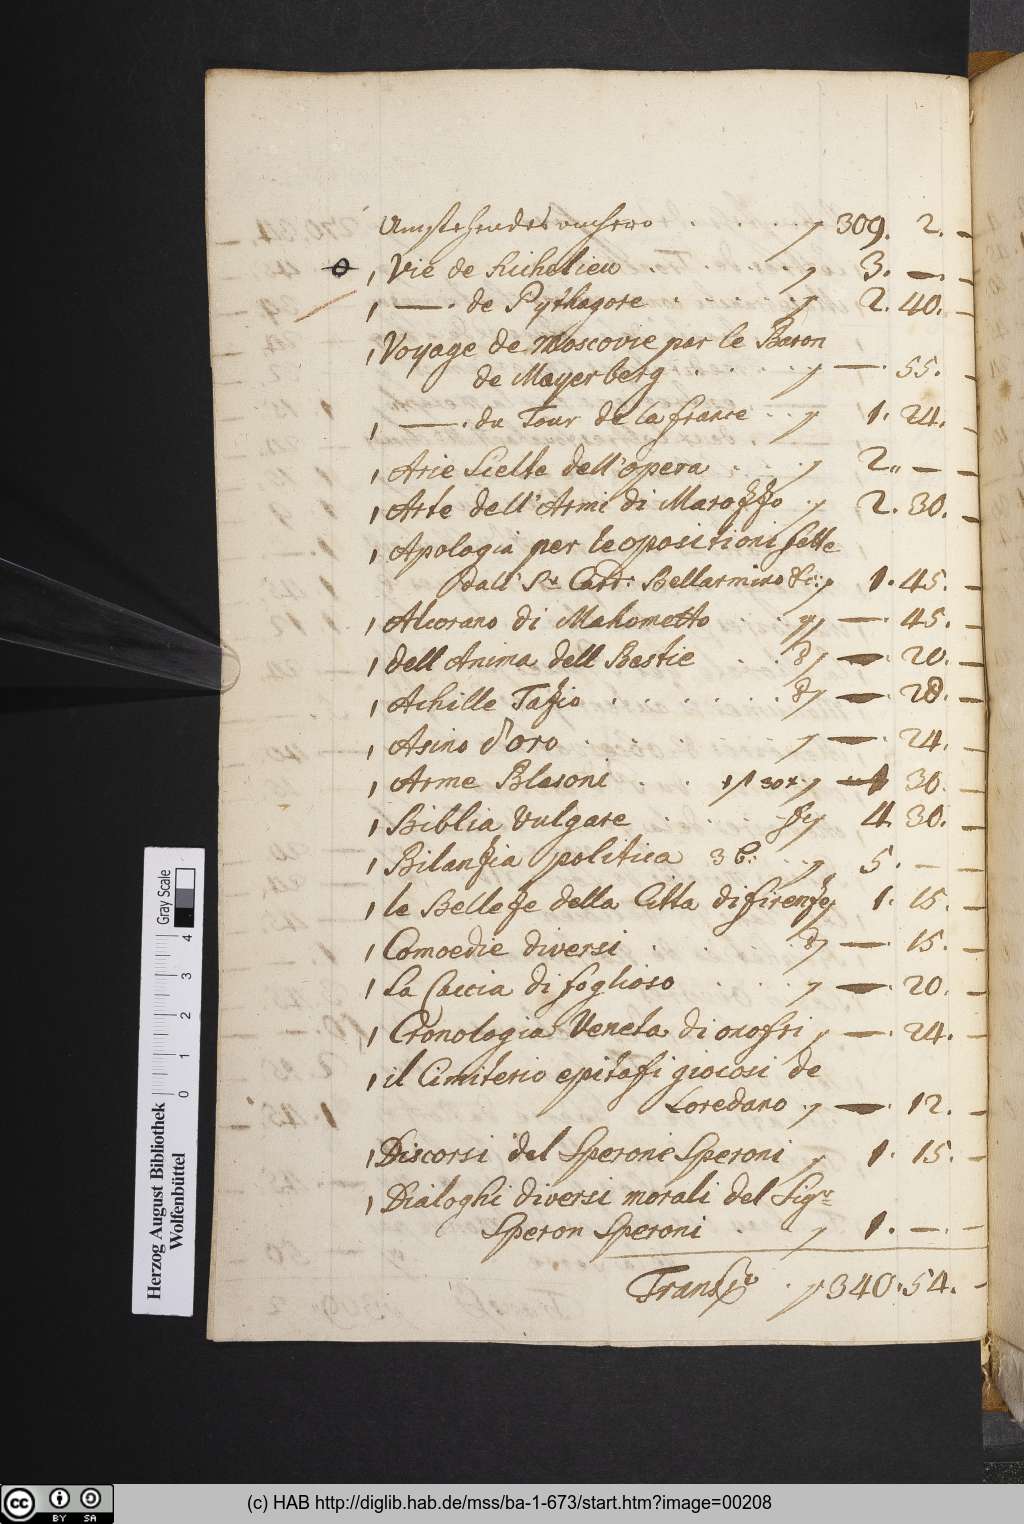 Umstehendes . . . . f 309. 2. –
1 Vie de Richelieu . . . . f 3. – –
1 — . de Pythagore . . . f 2. 40. –
1 Voyage de Moscovie par le Baron
de Mayerberg . . . f — . 55. –
1 — . du Tour de la france . . f 1. 24. –
1 Arie Scelte dell'opera . . . f 2 „ — –
1 Arte dell'Armi di Marozzo . f 2. 30. –
1 Apologia per le opositioni fatte
dall' Sr Card: Bellarmino &c: f 1. 45. –
1 Alcorano di Mahometto . . f — . 45. –
1 dell Anima dell Bestie . . f — . 20. –
1 Achille Tazio . . . . . . f — . 20. –
1 Asino d'oro . . . . . . f — . 24. –
1 Arme Blasoni . . . 30x f 30. –
1 Biblia Vulgare . . . . f 4. 30. –
1 Bilanzia politica 3 b: . . f 5. – –
1 le Belleze della Citta di firenze f 1. 15. –
1 Comoedie diversi . . . f — . 15. –
1 La Caccia di foglioso . . f — . 20. –
1 Cronologia Veneta di onofri f — . 24. –
1 il Cimiterio epitafi giocosi de
Loredano . f — . 12. –
1 Discorsi del Sperone Speroni f 1. 15. –
1 Dialoghi diversi morali del Sigr:
Speron Speroni . f 1. — . –
. f 340. 54. –
Herzog August Bibliothek
Wolfenbüttel
Gray Scale
0 1 2 3 4
(c) HAB http://diglib.hab.de/mss/ba-1-673/start.htm?image=00208
cc BY SA